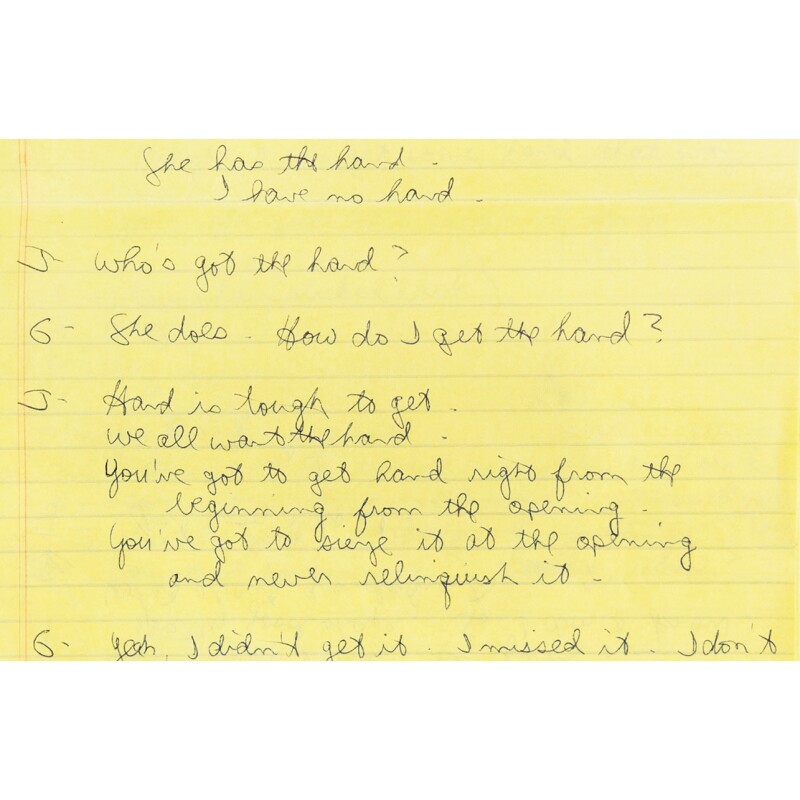 She has the hand.
I have no hand.
J- Who's got the hand?
G- She does. How do I get the hand?
J- Hand is tough to get.
We all want the hand.
You've got to get hand right from the
beginning from the opening.
You've got to sieze it at the opening
and never relinquish it.
G- Yeah, I didn't get it. I missed it. I don't